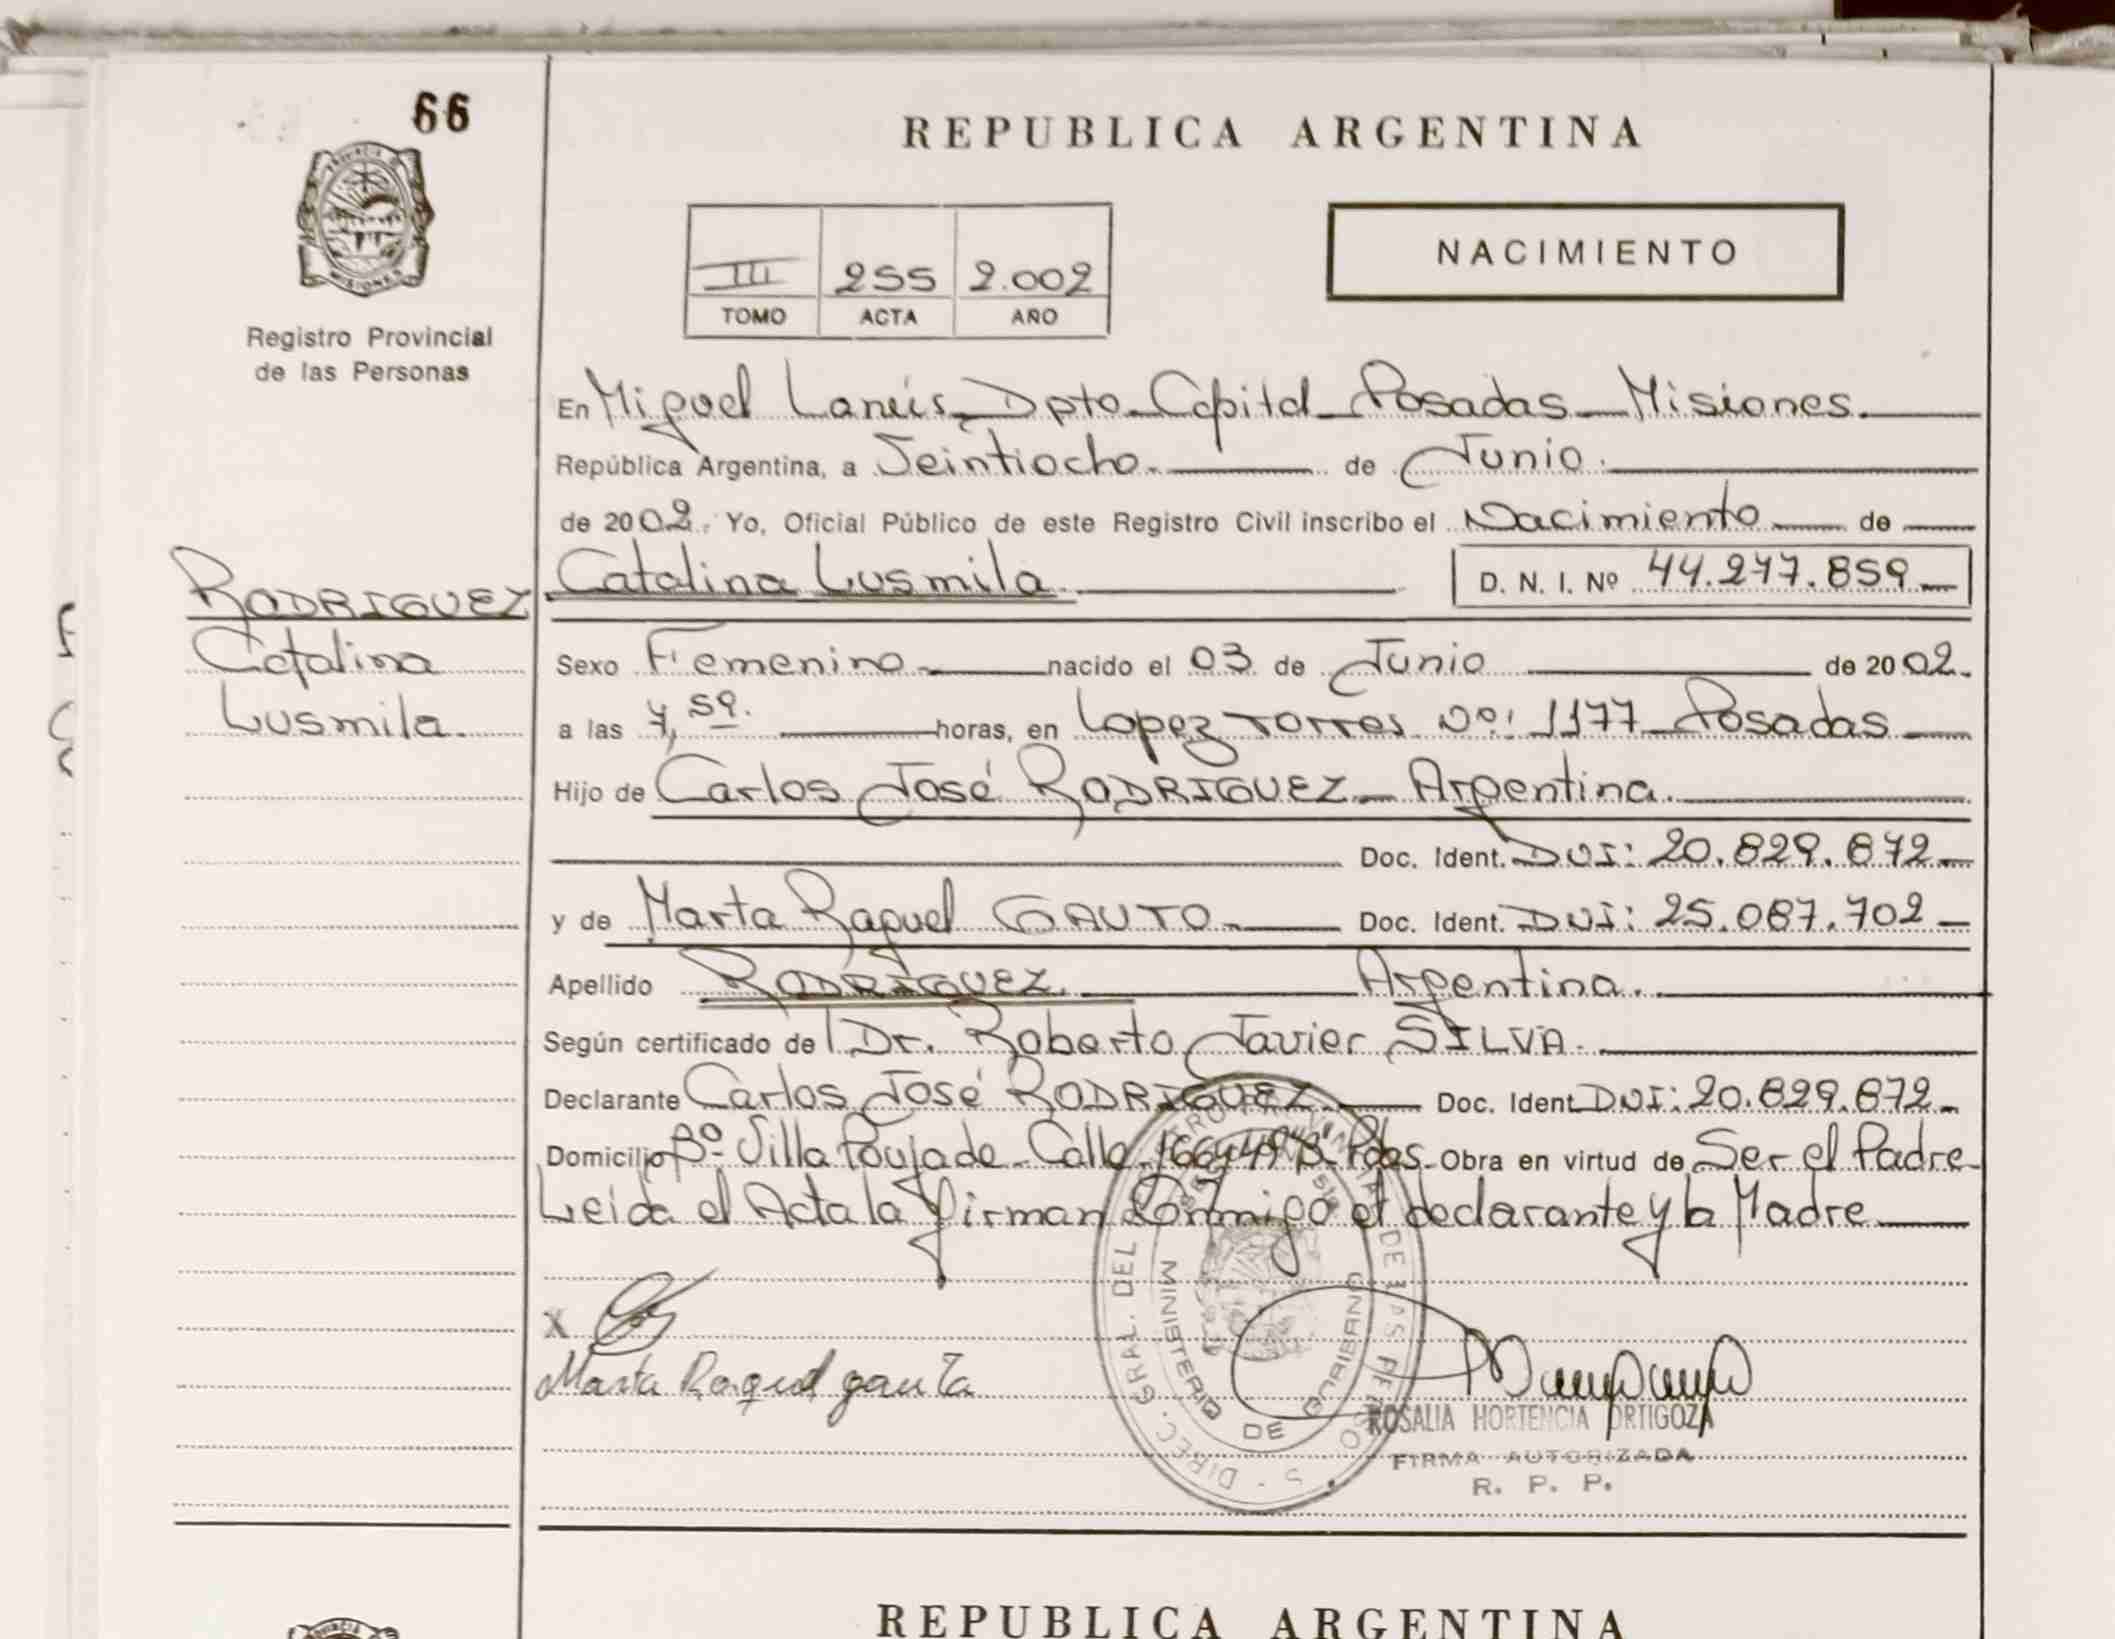 66
REPUBLICA ARGENTINA
PROVINCIA DE MISIONES
Registro Provincial
de las Personas
III 255 2.002
TOMO ACTA AÑO
NACIMIENTO
En Miguel Lanús Dpto Capital Posadas Misiones.
República Argentina, a Veintiocho. de Junio.
de 2002. Yo, Oficial Público de este Registro Civil inscribo el Nacimiento de
RODRIGUEZ Catalina Lusmila.
D. N. I. Nº 44.277.859
Catalina
Sexo Femenino nacido el 03 de Junio de 2002.
Lusmila.
a las 7,59. horas, en Lopez Torres Nº: 1177 Posadas
Hijo de Carlos José RODRIGUEZ Argentina.
Doc. Ident. DNI: 20.829.872
y de Marta Raquel GAUTO Doc. Ident. DNI: 25.087.702
Apellido RODRIGUEZ. Argentina.
Según certificado de Dr. Roberto Javier SILVA.
Declarante Carlos José RODRIGUEZ Doc. Ident. DNI: 20.829.872
Domicilio Bº Villa Poujade Calle Pdas. Obra en virtud de Ser el Padre
Leida el Acta la firman conmigo el declarante y la Madre
X
Marta Raquel gauta
DIREC. GRAL. DEL DE LAS
MINISTERIO DE
ROSALIA HORTENCIA ORTIGOZA
FIRMA AUTORIZADA
R. P. P.
REPUBLICA ARGENTINA